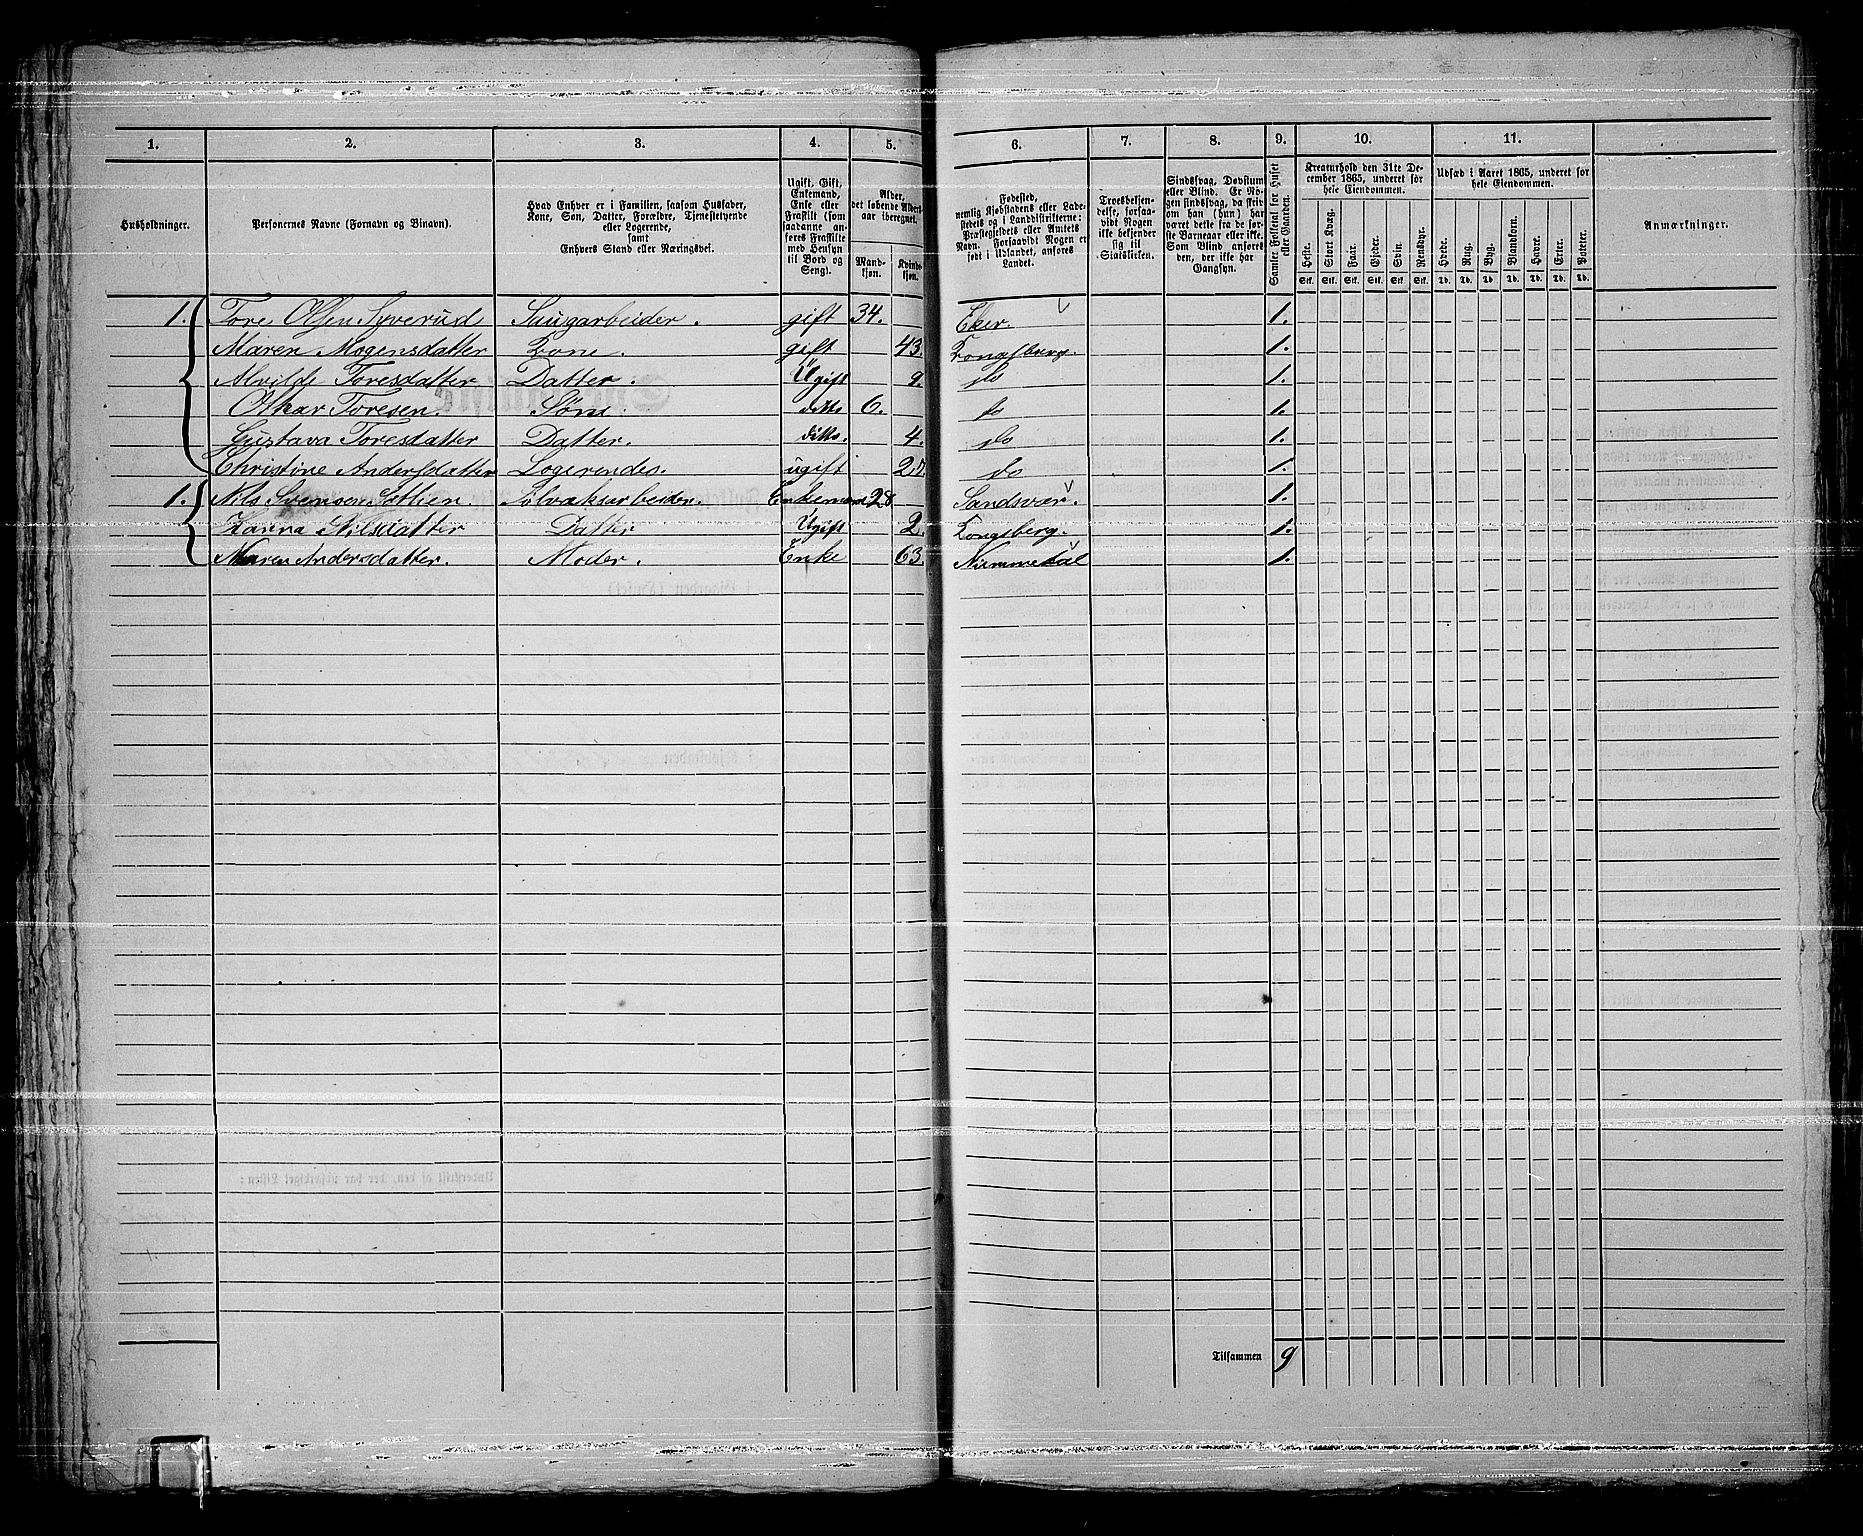 1. 2. 3. 4. 5. 6. 7. 8. 9. 10. 11.
Husholdninger.
Personernes Navne (Fornavn og Binavn).
Hvad Enhver er i Familien, saasom Husfader,
Kone, Søn, Datter, Forældre, Tjenestetyende
eller Logerende,
samt
Enhvers Stand eller Næringsvei.
Ugift, Gift,
Enkemand,
Enke eller
Fraskilt (som
saadanne an-
føres Fraskilte
med Hensyn
til Bord og
Seng).
Alder,
det løbende Alders-
aar iberegnet.
Mand-
kjøn.
Kvinde-
kjøn.
Fødested,
nemlig Kjøbstadens eller Lade-
stedets og i Landdistrikterne:
Præstegjeldets eller Amtets
Navn. Forsaavidt Nogen er
født i Udlandet, anføres
Landet.
Troesbekjen-
delse, forsaa-
vidt Nogen
ikke bekjender
sig til
Statskirken.
Sindssvag, Døvstum
eller Blind. Er No-
gen sindssvag, da skriv
om han (hun) har
været dette fra de før-
ste Barneaar eller ikke.
Som Blind anføres
den, der ikke har
Gangsyn.
Samlet Folketal for Huset
eller Gaarden.
Kreaturhold den 31te De-
cember 1865, underet for
hele Eiendommen.
Heste. Stort Kvæg. Faar. Gjeder. Svin. Rensdyr.
Stk. Stk. Stk. Stk. Stk. Stk.
Udsæd i Aaret 1865, underet for
hele Eiendommen.
Hvede. Rug. Byg. Blandkorn. Havre. Erter. Poteter.
Td. Td. Td. Td. Td. Td. Td.
Anmærkninger.
1. Tore Olsen Syverud Saugarbeider. gift 34. Eker. 1.
Maren Mogensdatter Kone. gift 43. Kongsberg. 1.
Alvilde Toresdatter Datter. Ugift 9. do 1.
Othar Toresen. Søn. ditto 6. do 1.
Gustava Toresdatter Datter. ditto. 4. do 1.
Christine Andersdatter Logerendes. ugift 27. do 1.
1. Nils Svensen Sølvaksarbeider. Enkemand 28 Sandsvær. 1.
Karina Nilsdatter Datter Ugift 2. Kongsberg. 1.
Maren Andersdatter. Moder. Enke 63. Nummedal 1.
Tilsammen 9